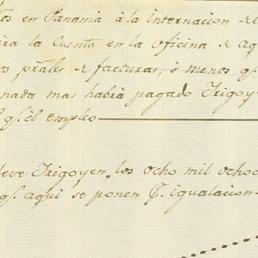 os en Panamá á la Internacion de
ira la Cuenta en la Oficina de aq
os prales. de facturas, ó menos qs.
nada mas habia pagado Yrigoy
qs. él empleo
deve Yrigoyen los ocho mil ochoc
qs. aqui se ponen pr. igualacion